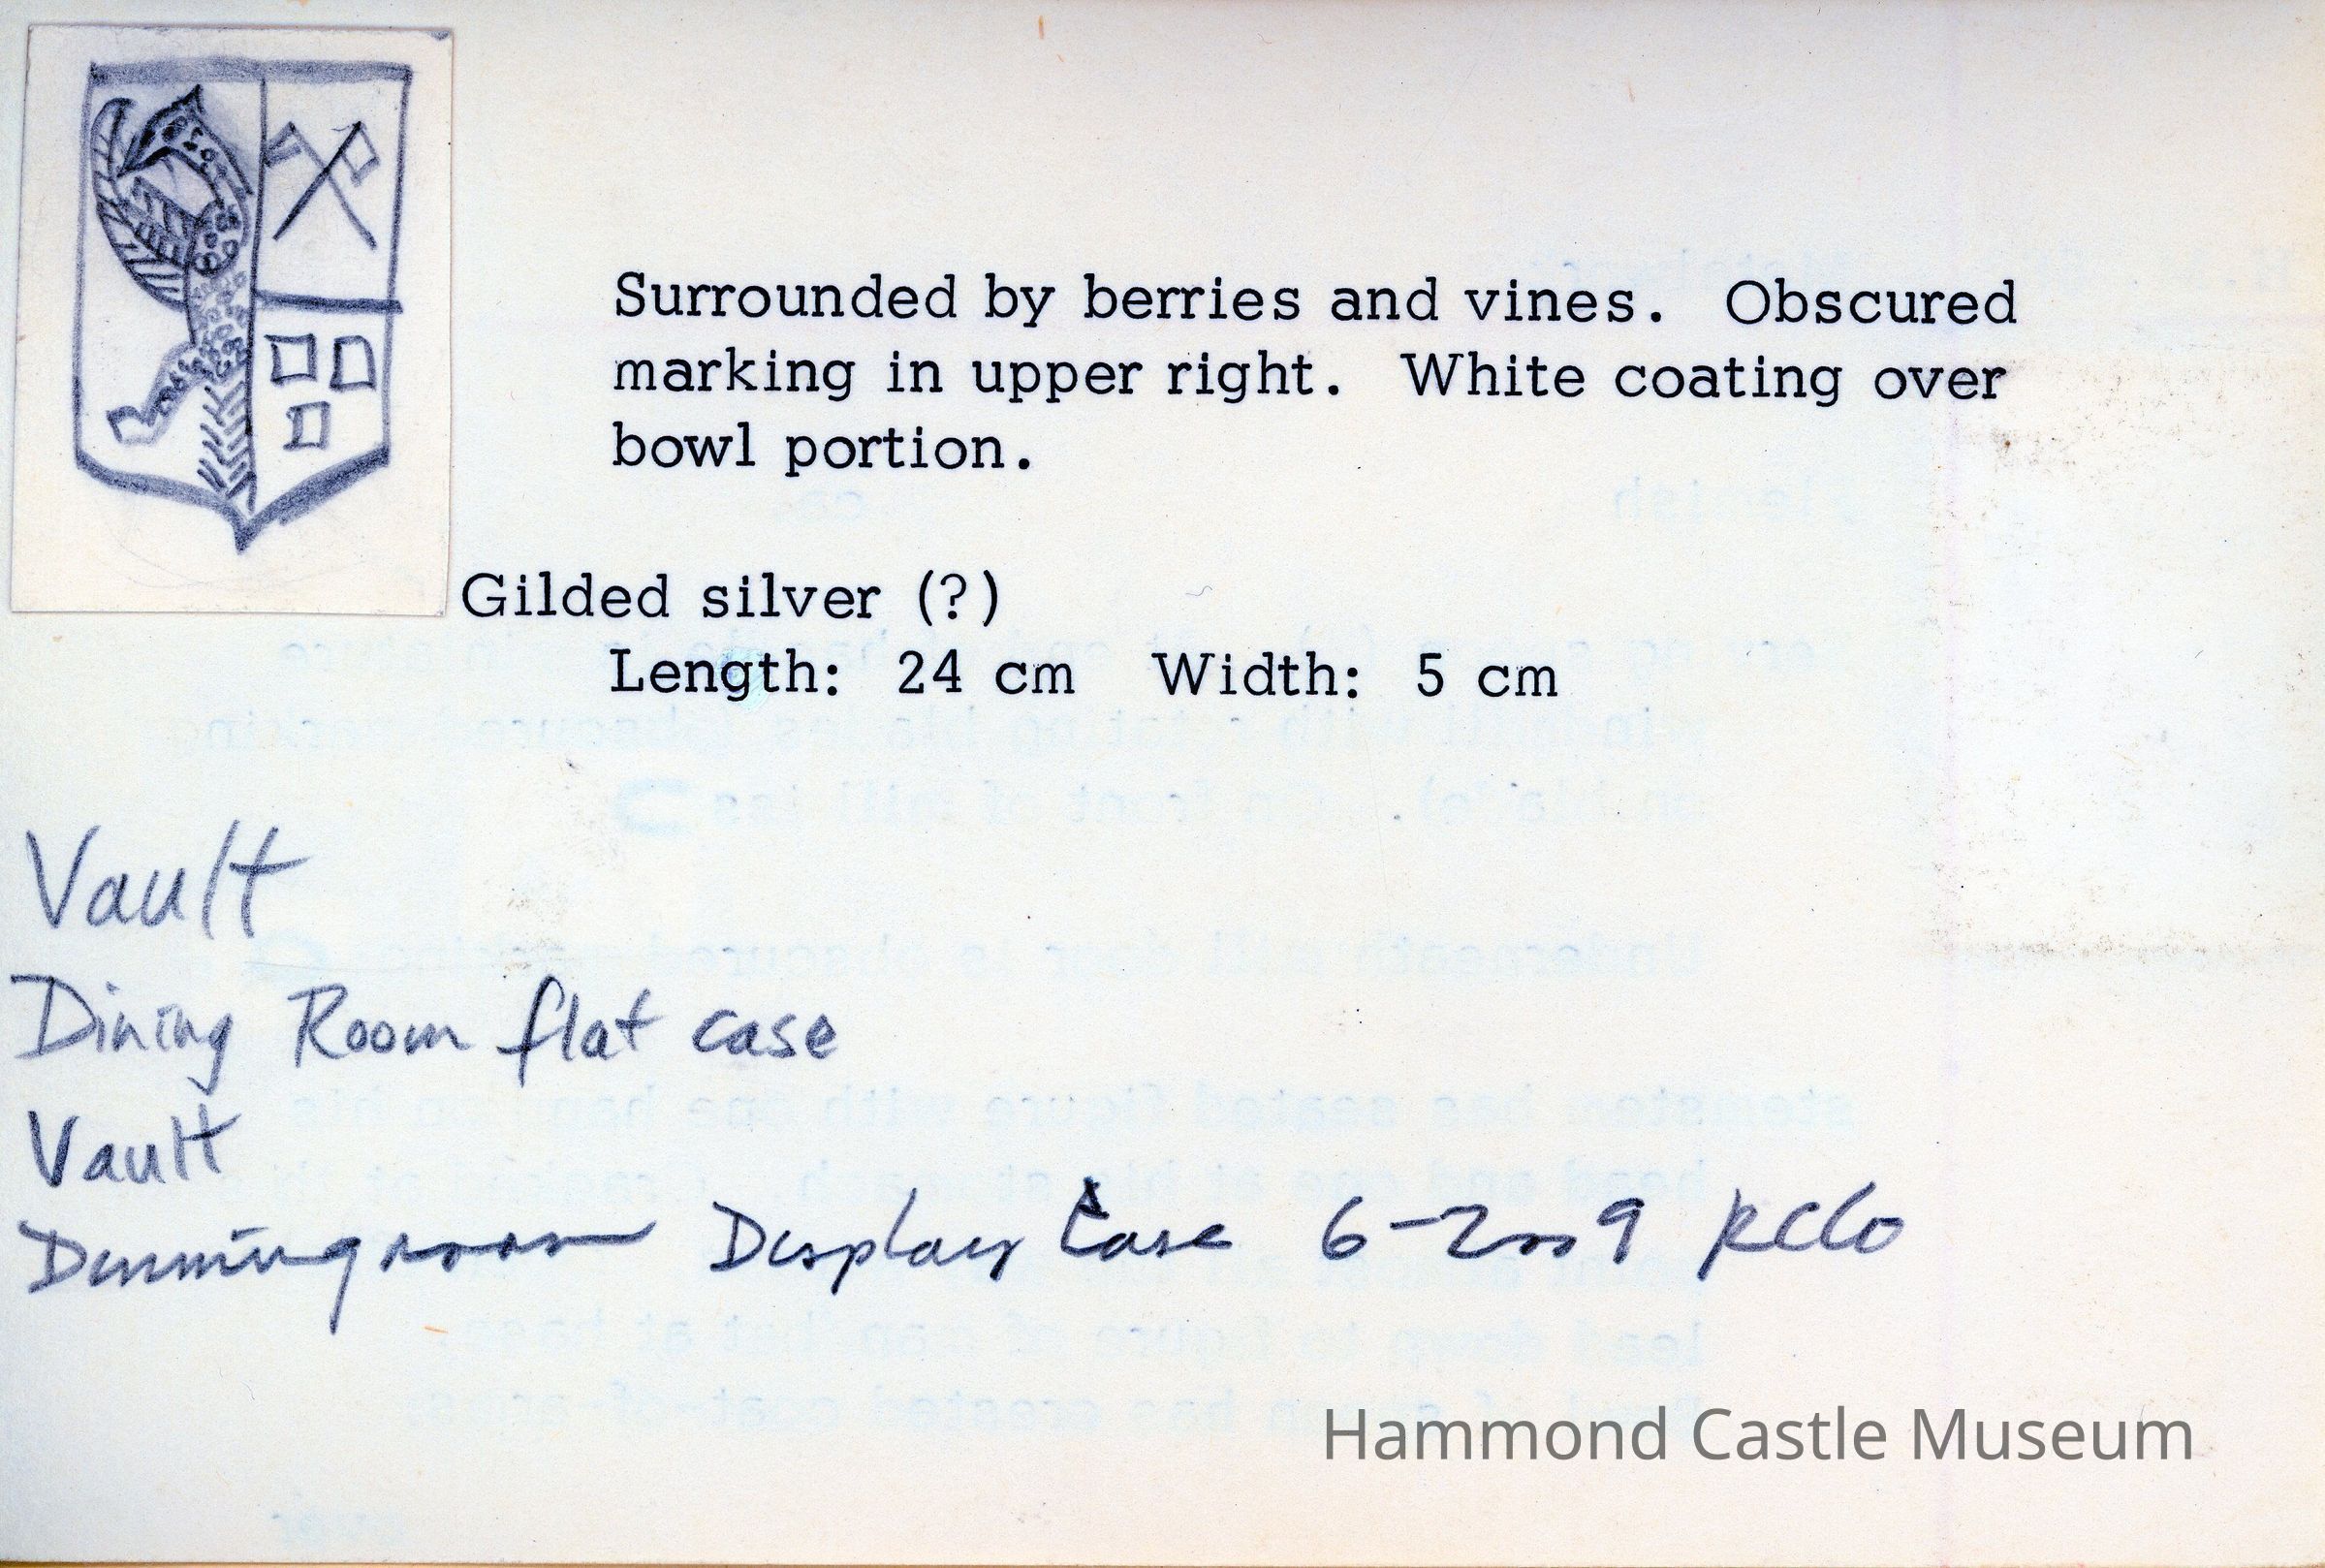 Surrounded by berries and vines. Obscured
marking in upper right. White coating over
bowl portion.
Gilded silver (?)
Length: 24 cm Width: 5 cm
Vault
Dining Room flat case
Vault
Display Case 6-2009
Hammond Castle Museum